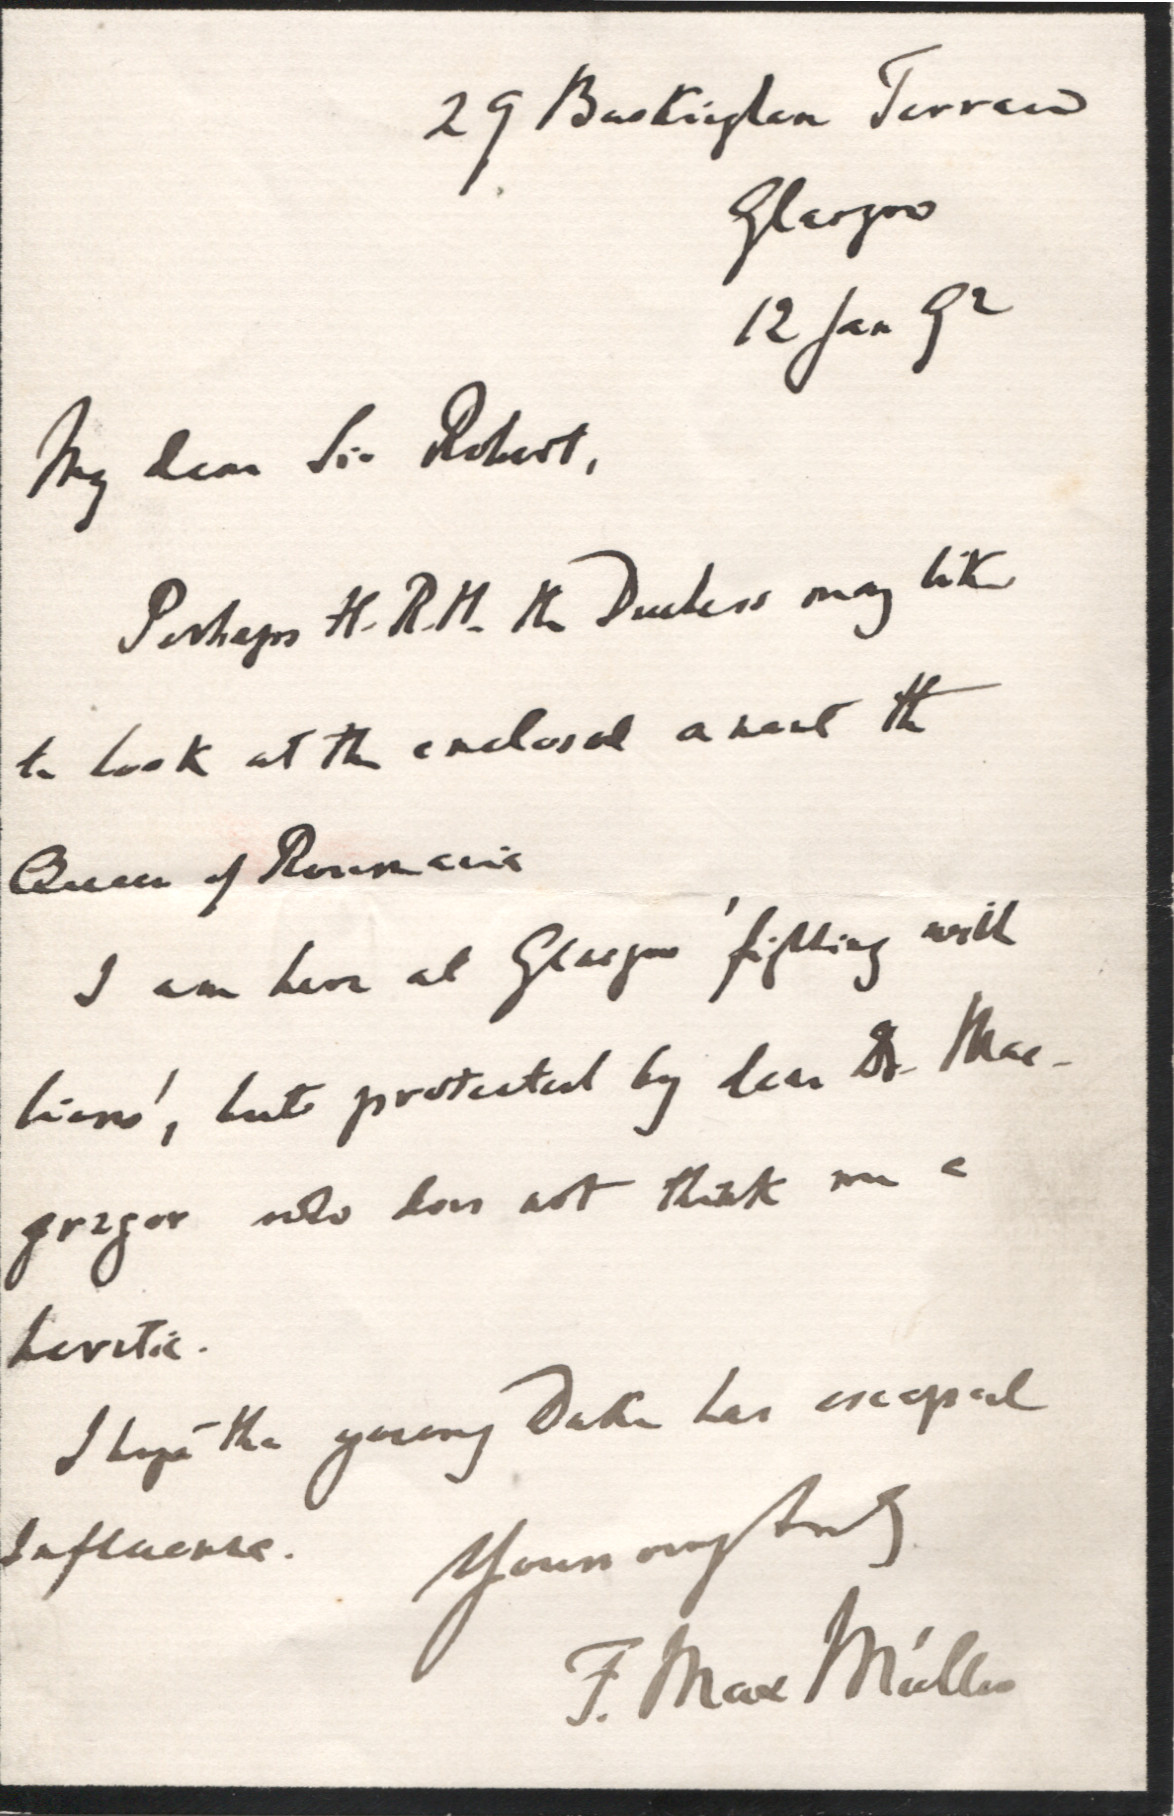 29 Buckingham Terrace
Glasgow
12 Jan 92
My dear Sir Robert,
Perhaps H.R.H. the Duchess may like
to look at the enclosed anent the
Queen of Roumania
I am here at Glasgow 'fighting with
lions', but protected by dear Dr. Mac-
gregor who does not think me a
heretic.
I hope the young Duke has escaped
Influenza.
Yours very truly
F. Max Müller